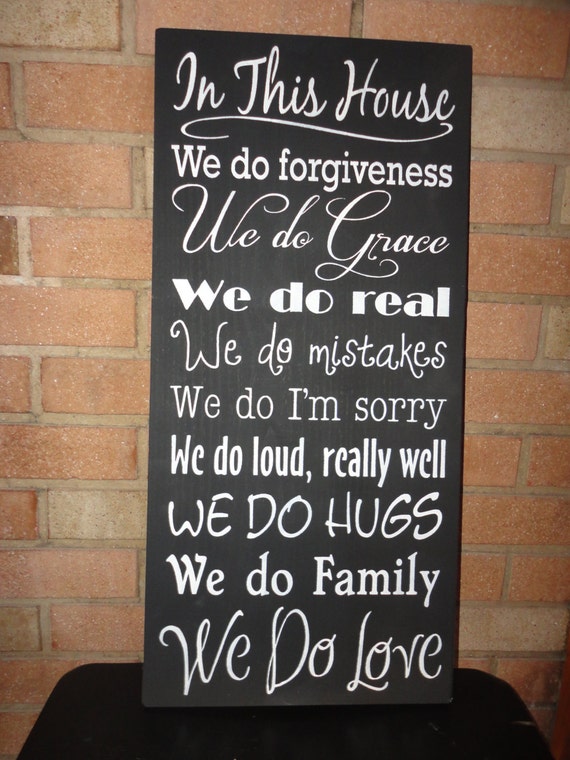 In This House
We do forgiveness
We do Grace
We do real
We do mistakes
We do I'm sorry
We do loud, really well
WE DO HUGS
We do Family
We Do Love